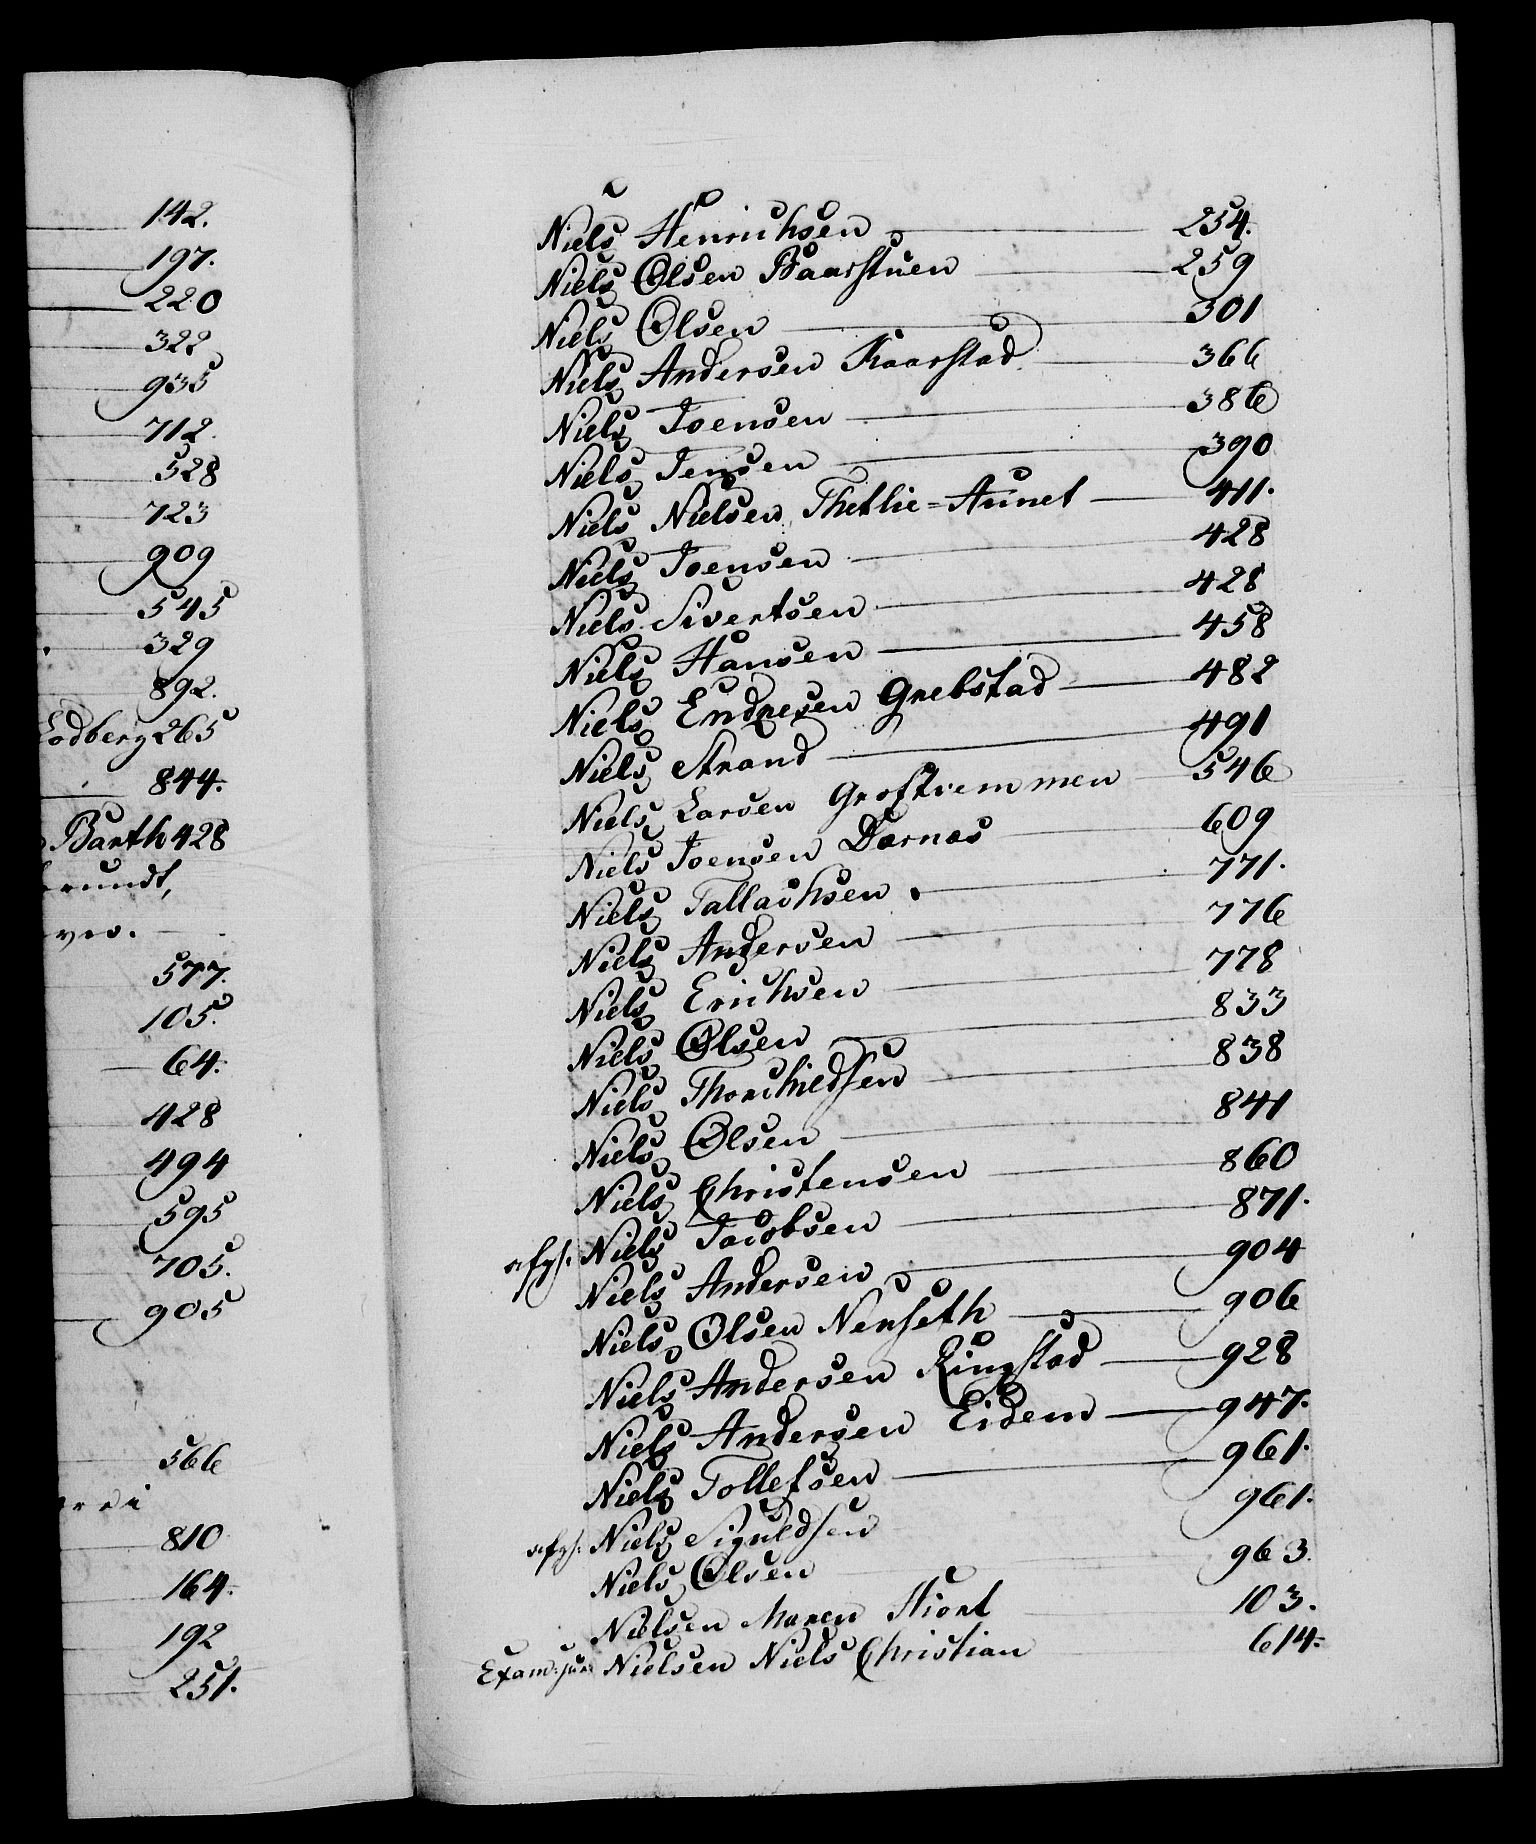 142.
197.
220
322
935
712.
528
723
909
545
329
892.
Lodberg 265
844.
Barth 428
577.
105.
64.
428
494
595
705.
905
566
810
164.
192
251.
Niels Henrichsen 254.
Niels Olsen Baarstuen 259
Niels Olsen 301
Niels Andersen Kaarstad 366
Niels Joensen 386
Niels Jensen 390
Niels Nielsen Thetlie=Aunet 411.
Niels Joensen 428
Niels Sivertsen 428
Niels Hansen 458
Niels Endresen Grebstad 482
Niels Strand 491
Niels Larsen 546
Niels Joensen Dærnæs 609
Niels Tallachsen 771.
Niels Andersen 776
Niels Erichsen 778
Niels Olsen 833
Niels Thorchildsen 838
Niels Olsen 841
Niels Christensen 860
afg. Niels Jacobsen 871.
Niels Andersen 904
Niels Olsen Nerseth 906
Niels Andersen Ringstad 928
Niels Andersen Eidem 947.
Niels Tollefsen 961.
afg. Niels Siguldsen 961.
Niels Olsen 963.
Nielsen Maren Hiort 103.
Exam: jur: Nielsen Niels Christian 614.